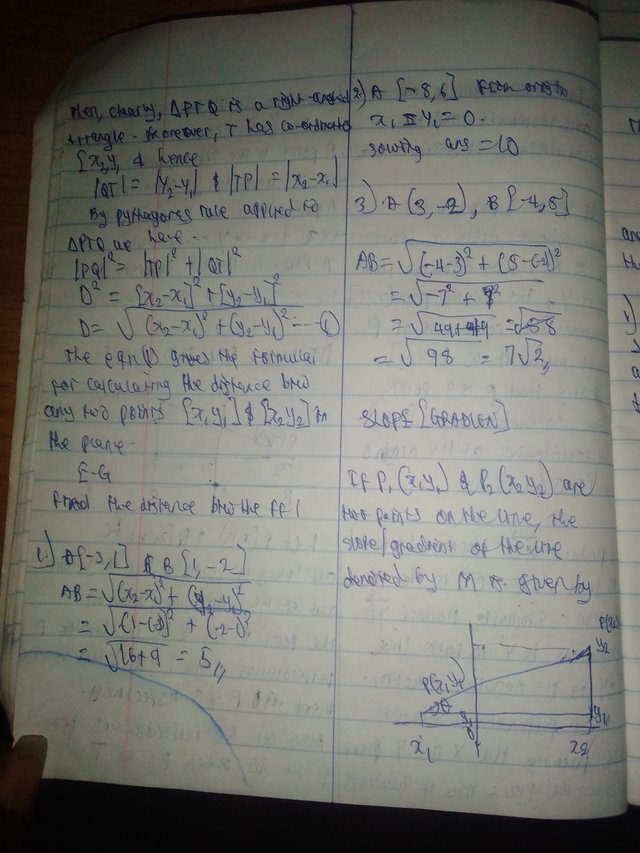 Then, clearly, ΔPTQ is a right-angled
triangle. Moreover, T has co-ordinates
[x2,y1 & hence
|QT| = |y2-y1| & |TP| = |x2-x1|
By pythagores rule applied to
ΔPTQ we have -
|PQ|² = |TP|² + |QT|²
D² = [x2-x1]² + [y2-y1]²
D = √(x2-x1)² + (y2-y1)² --- (1)
The eqn (1) gives the formular
for calculating the distance btw
any two points [x1y1] & [x2y2] in
the plane -
E-G
find the distance btw the ff
1.) A[-3,1] & B[1,-2]
AB = √(x2-x)² + (y2-y)²
= √(1-(-3))² + (-2-1)²
= √16+9 = 5//
2.) A [-8,6] from origin
x1 = y1 = 0.
solving ans = 10
3.) A(3,-2), B[-4,5]
AB = √(-4-3)² + (5-(-2))²
= √-7² + 7²
= √49+49
= √98 = 7√2//
SLOPE [GRADIEN]
If P1(x1y1) & P2(x2y2) are
two points on the line, the
slope/gradient of the line
denoted by M is given by
P(x1y1)
θ
y2
y1
x1
x2